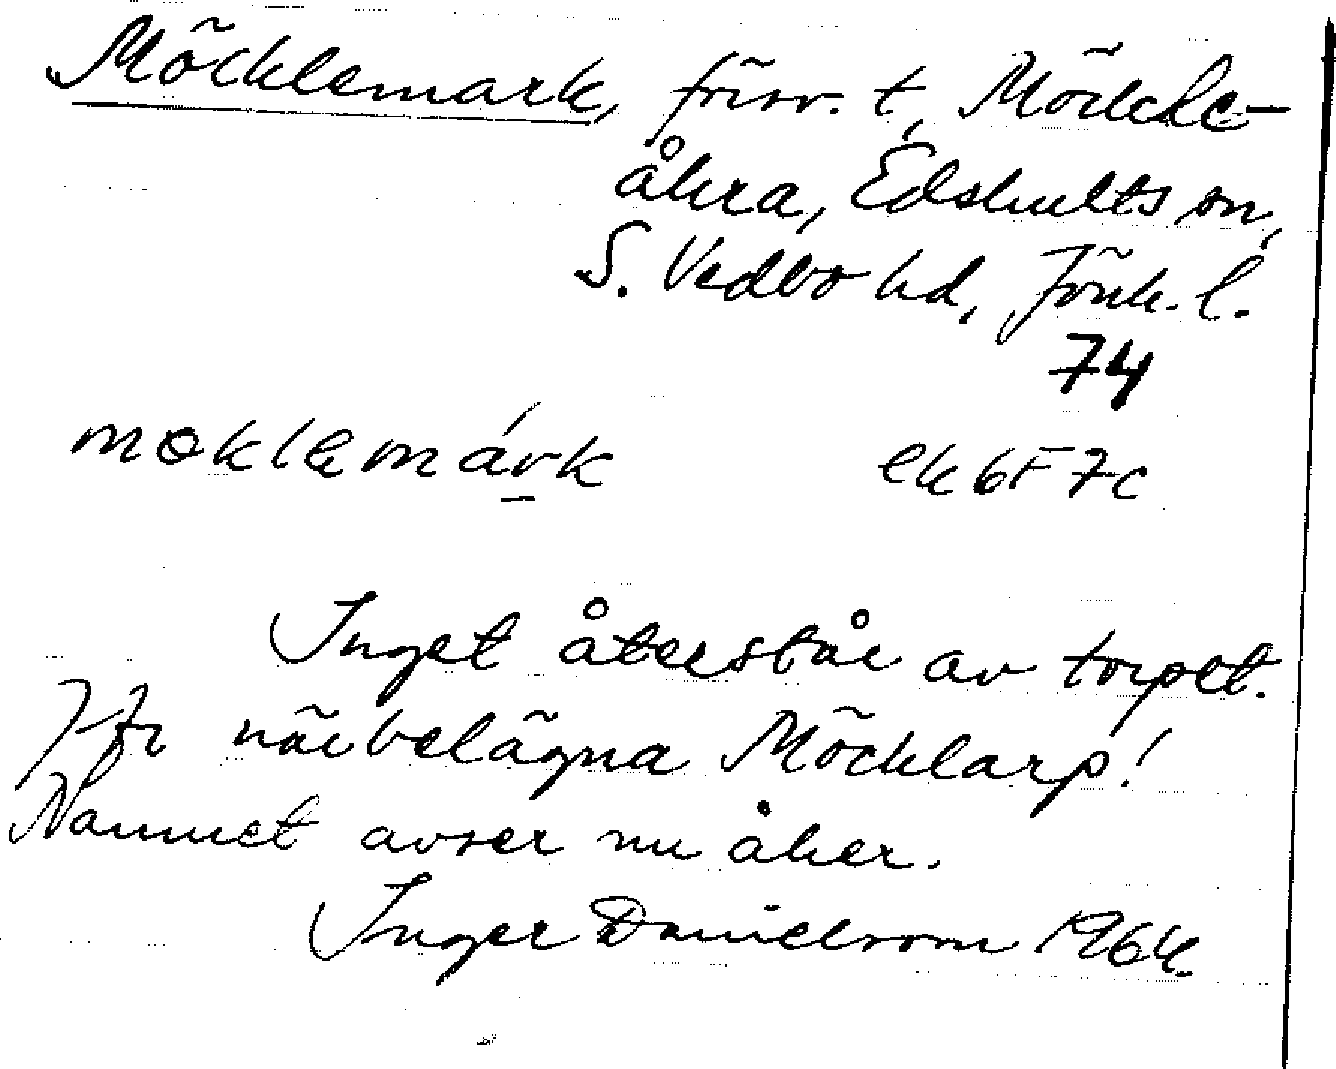 Möcklemark, försv. t, Möckle-
åkra, Edshults sn,
S. Vedbo hd, Jönk. l.
74
mɵklɐmárk ek 6F 7c
Inget återstår av torpet.
Jfr närbelägna Möcklarp!
Namnet avser nu åker.
Inger Danielsson 1964.